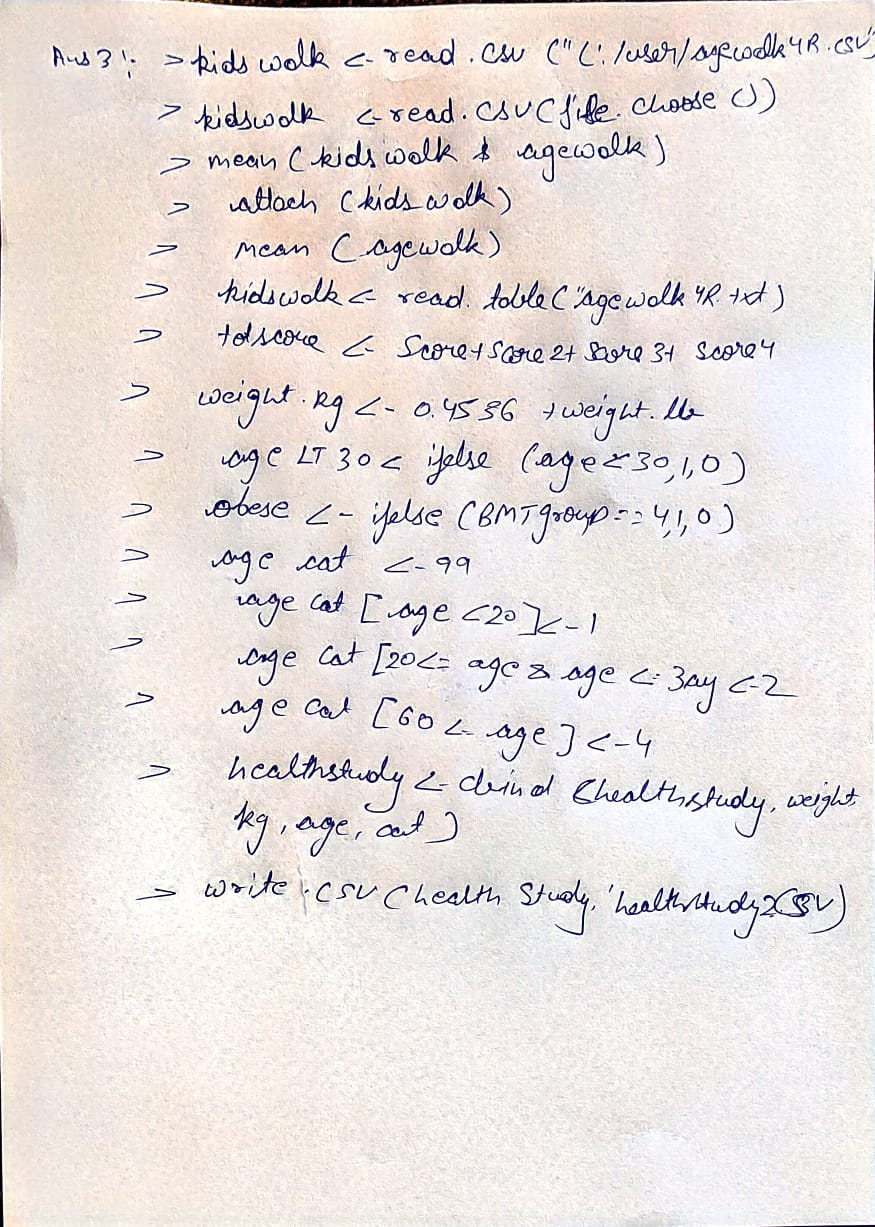 Ans 3 :- > kids walk <- read . csv ("C:/user/agewalk4R.csv")
> kidswalk <- read. CSV (file. choose ())
> mean ( kids walk $ agewalk )
> attach (kids walk)
> mean ( agewalk)
> kidswalk <- read. table ( "agewalk 4R. txt )
> totscore <- Score + Score 2 + Score 3 + Score 4
> weight. kg <- 0.4536 * weight. lb
> age LT 30 < ifelse (age < 30, 1, 0 )
> obese <- ifelse (BMI group == 4, 1, 0 )
> age cat <- 99
> age cat [ age < 20 ] <- 1
> age cat [20 <= age & age <= <- 2
> age cat [60 <- age ] <- 4
> healthstudy <- (healthstudy, weight.
kg, age, cat )
> write . CSV ( health Study, 'healthstudy2 CSV)